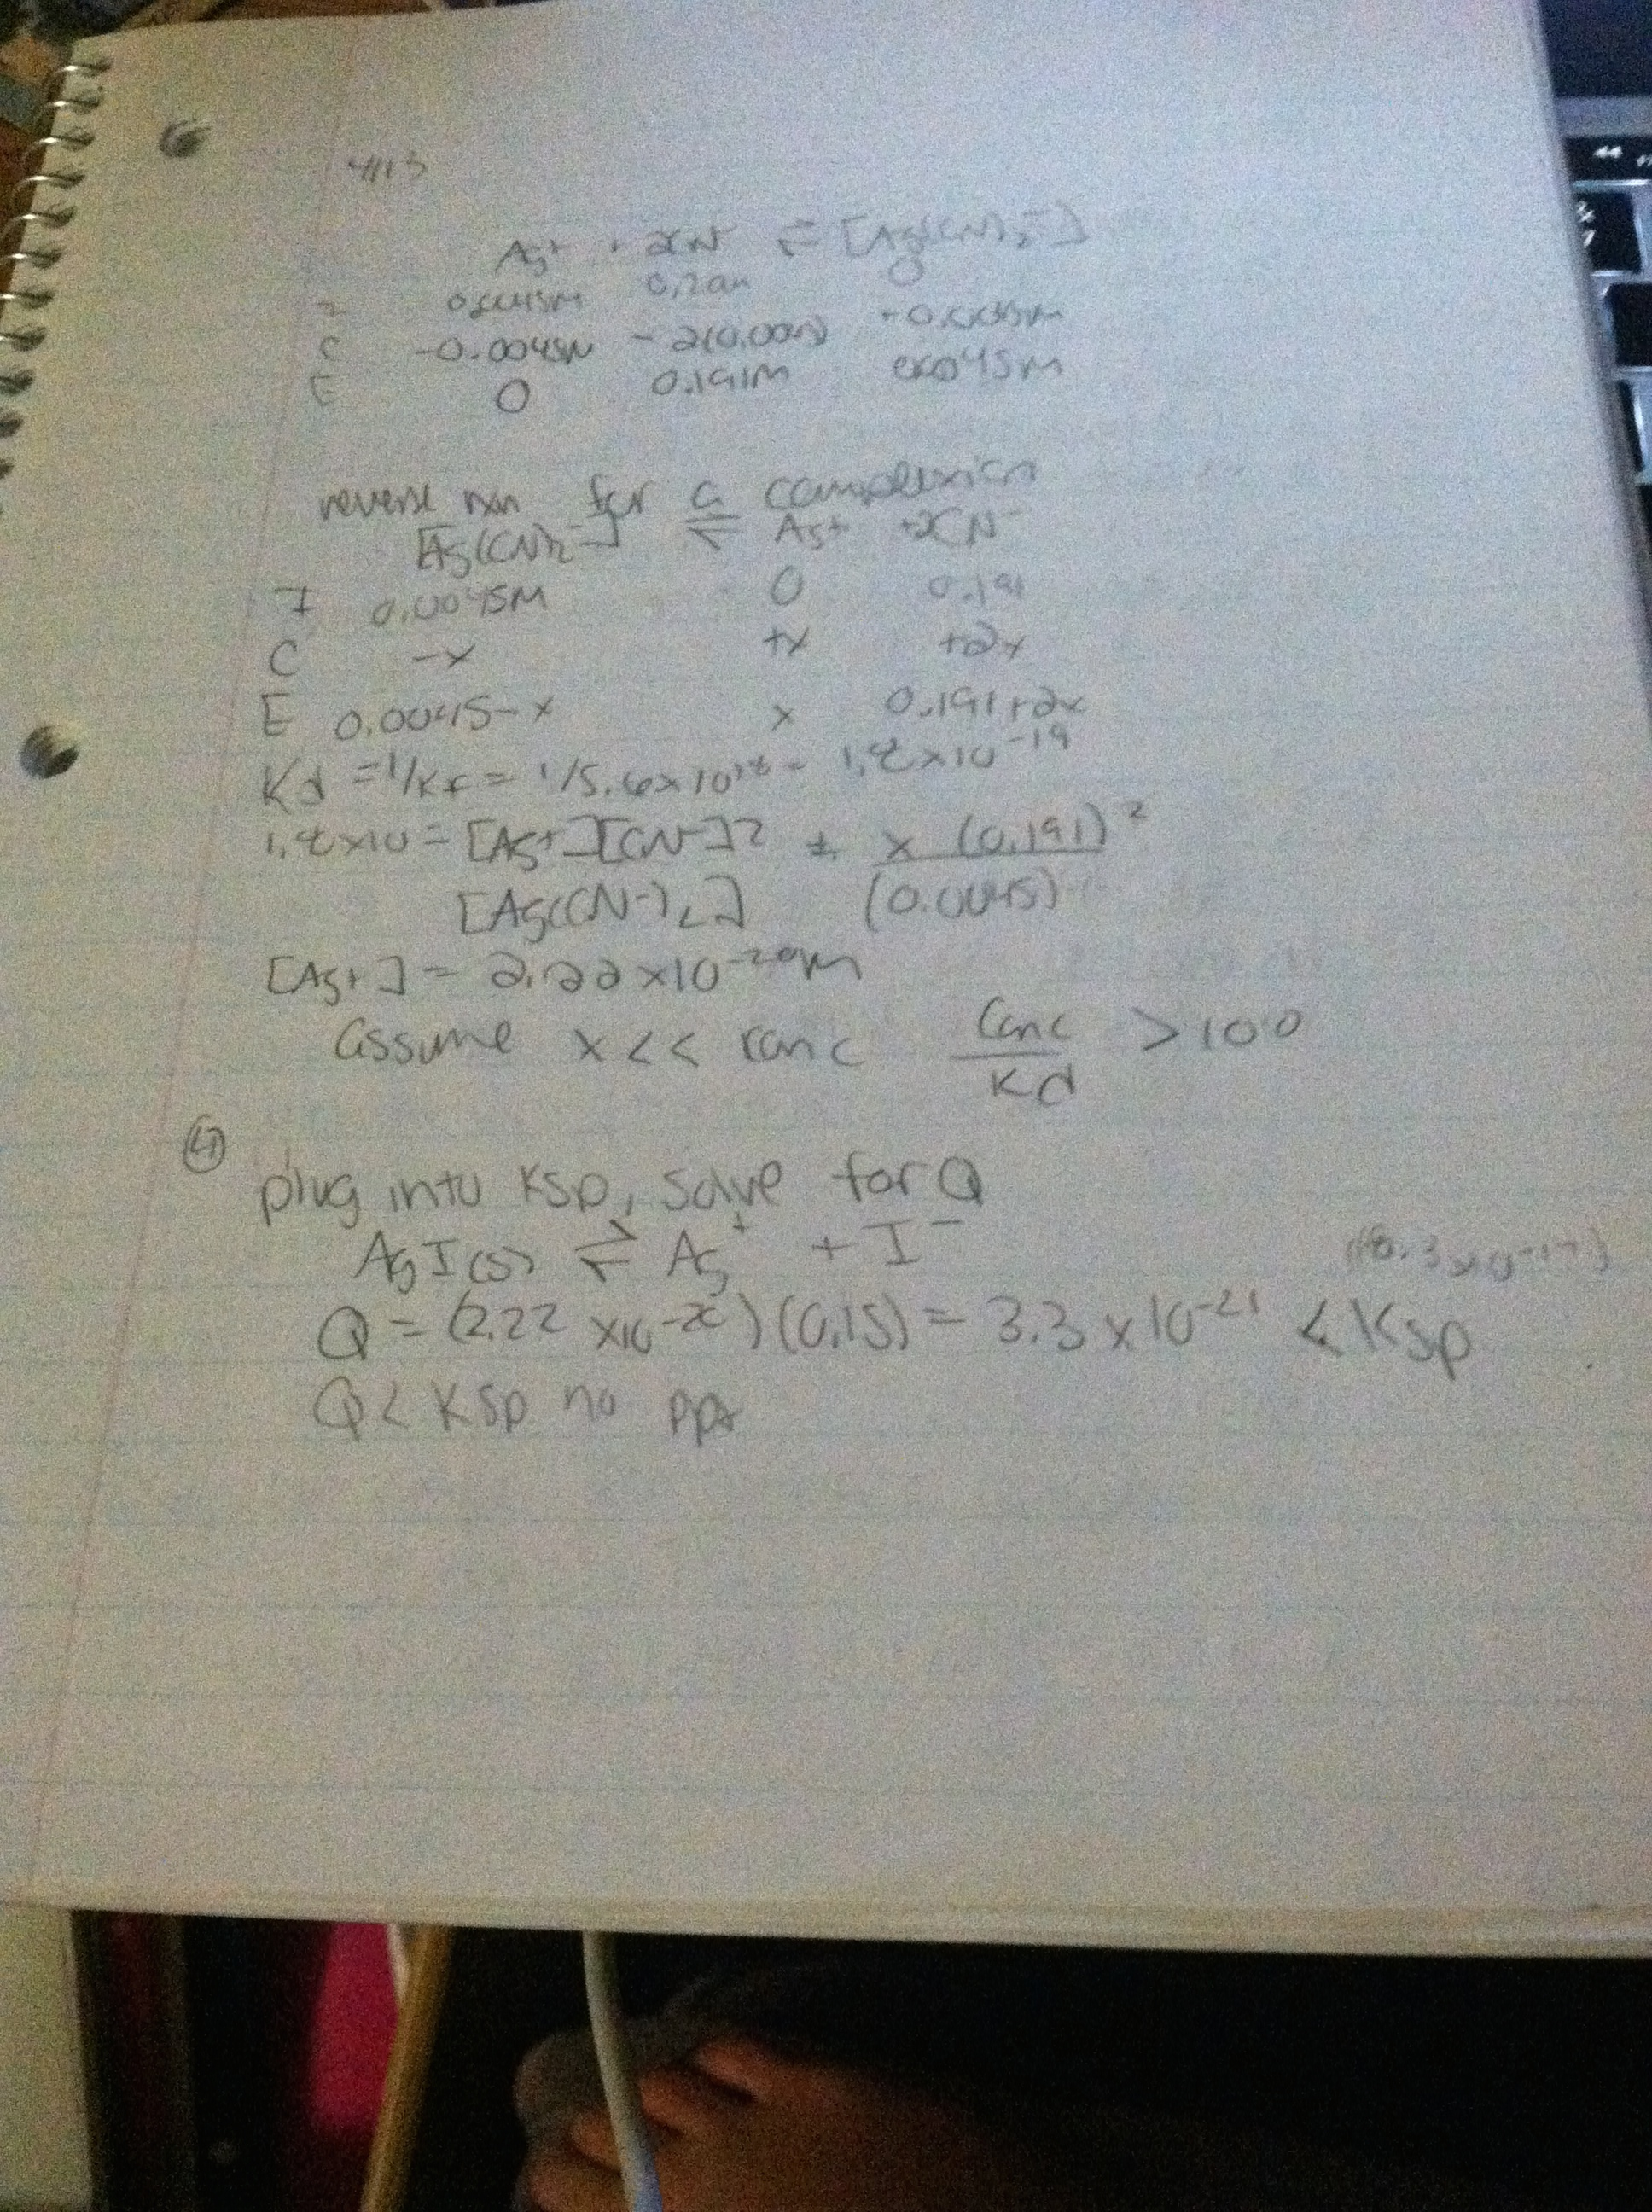 4/13
Ag+ + 2CN- ⇌ [Ag(CN)2-]
I 0.0045M 0.20M 0
C -0.0045M - 2(0.0045) +0.0045M
E 0 0.191M 0.0045M
reverse rxn for a complexion
[Ag(CN)2-] ⇌ Ag+ +2CN-
I 0.0045M 0 0.191
C -x +x +2x
E 0.0045-x x 0.191+2x
Kd = 1/Kf = 1/5.6x10^18 = 1.8x10^-19
1.8x10 = [Ag+][CN-]2 = x (0.191)^2
[Ag(CN-)2] (0.0045)
[Ag+] = 2.22x10^-20M
assume x<< conc Conc/Kd >100
④ plug into Ksp, solve for Q
AgI(s) ⇌ Ag+ + I-
(8.3x10^-17)
Q = (2.22 x10^-20)(0.15) = 3.3x10^-21 < Ksp
Q< Ksp no ppt